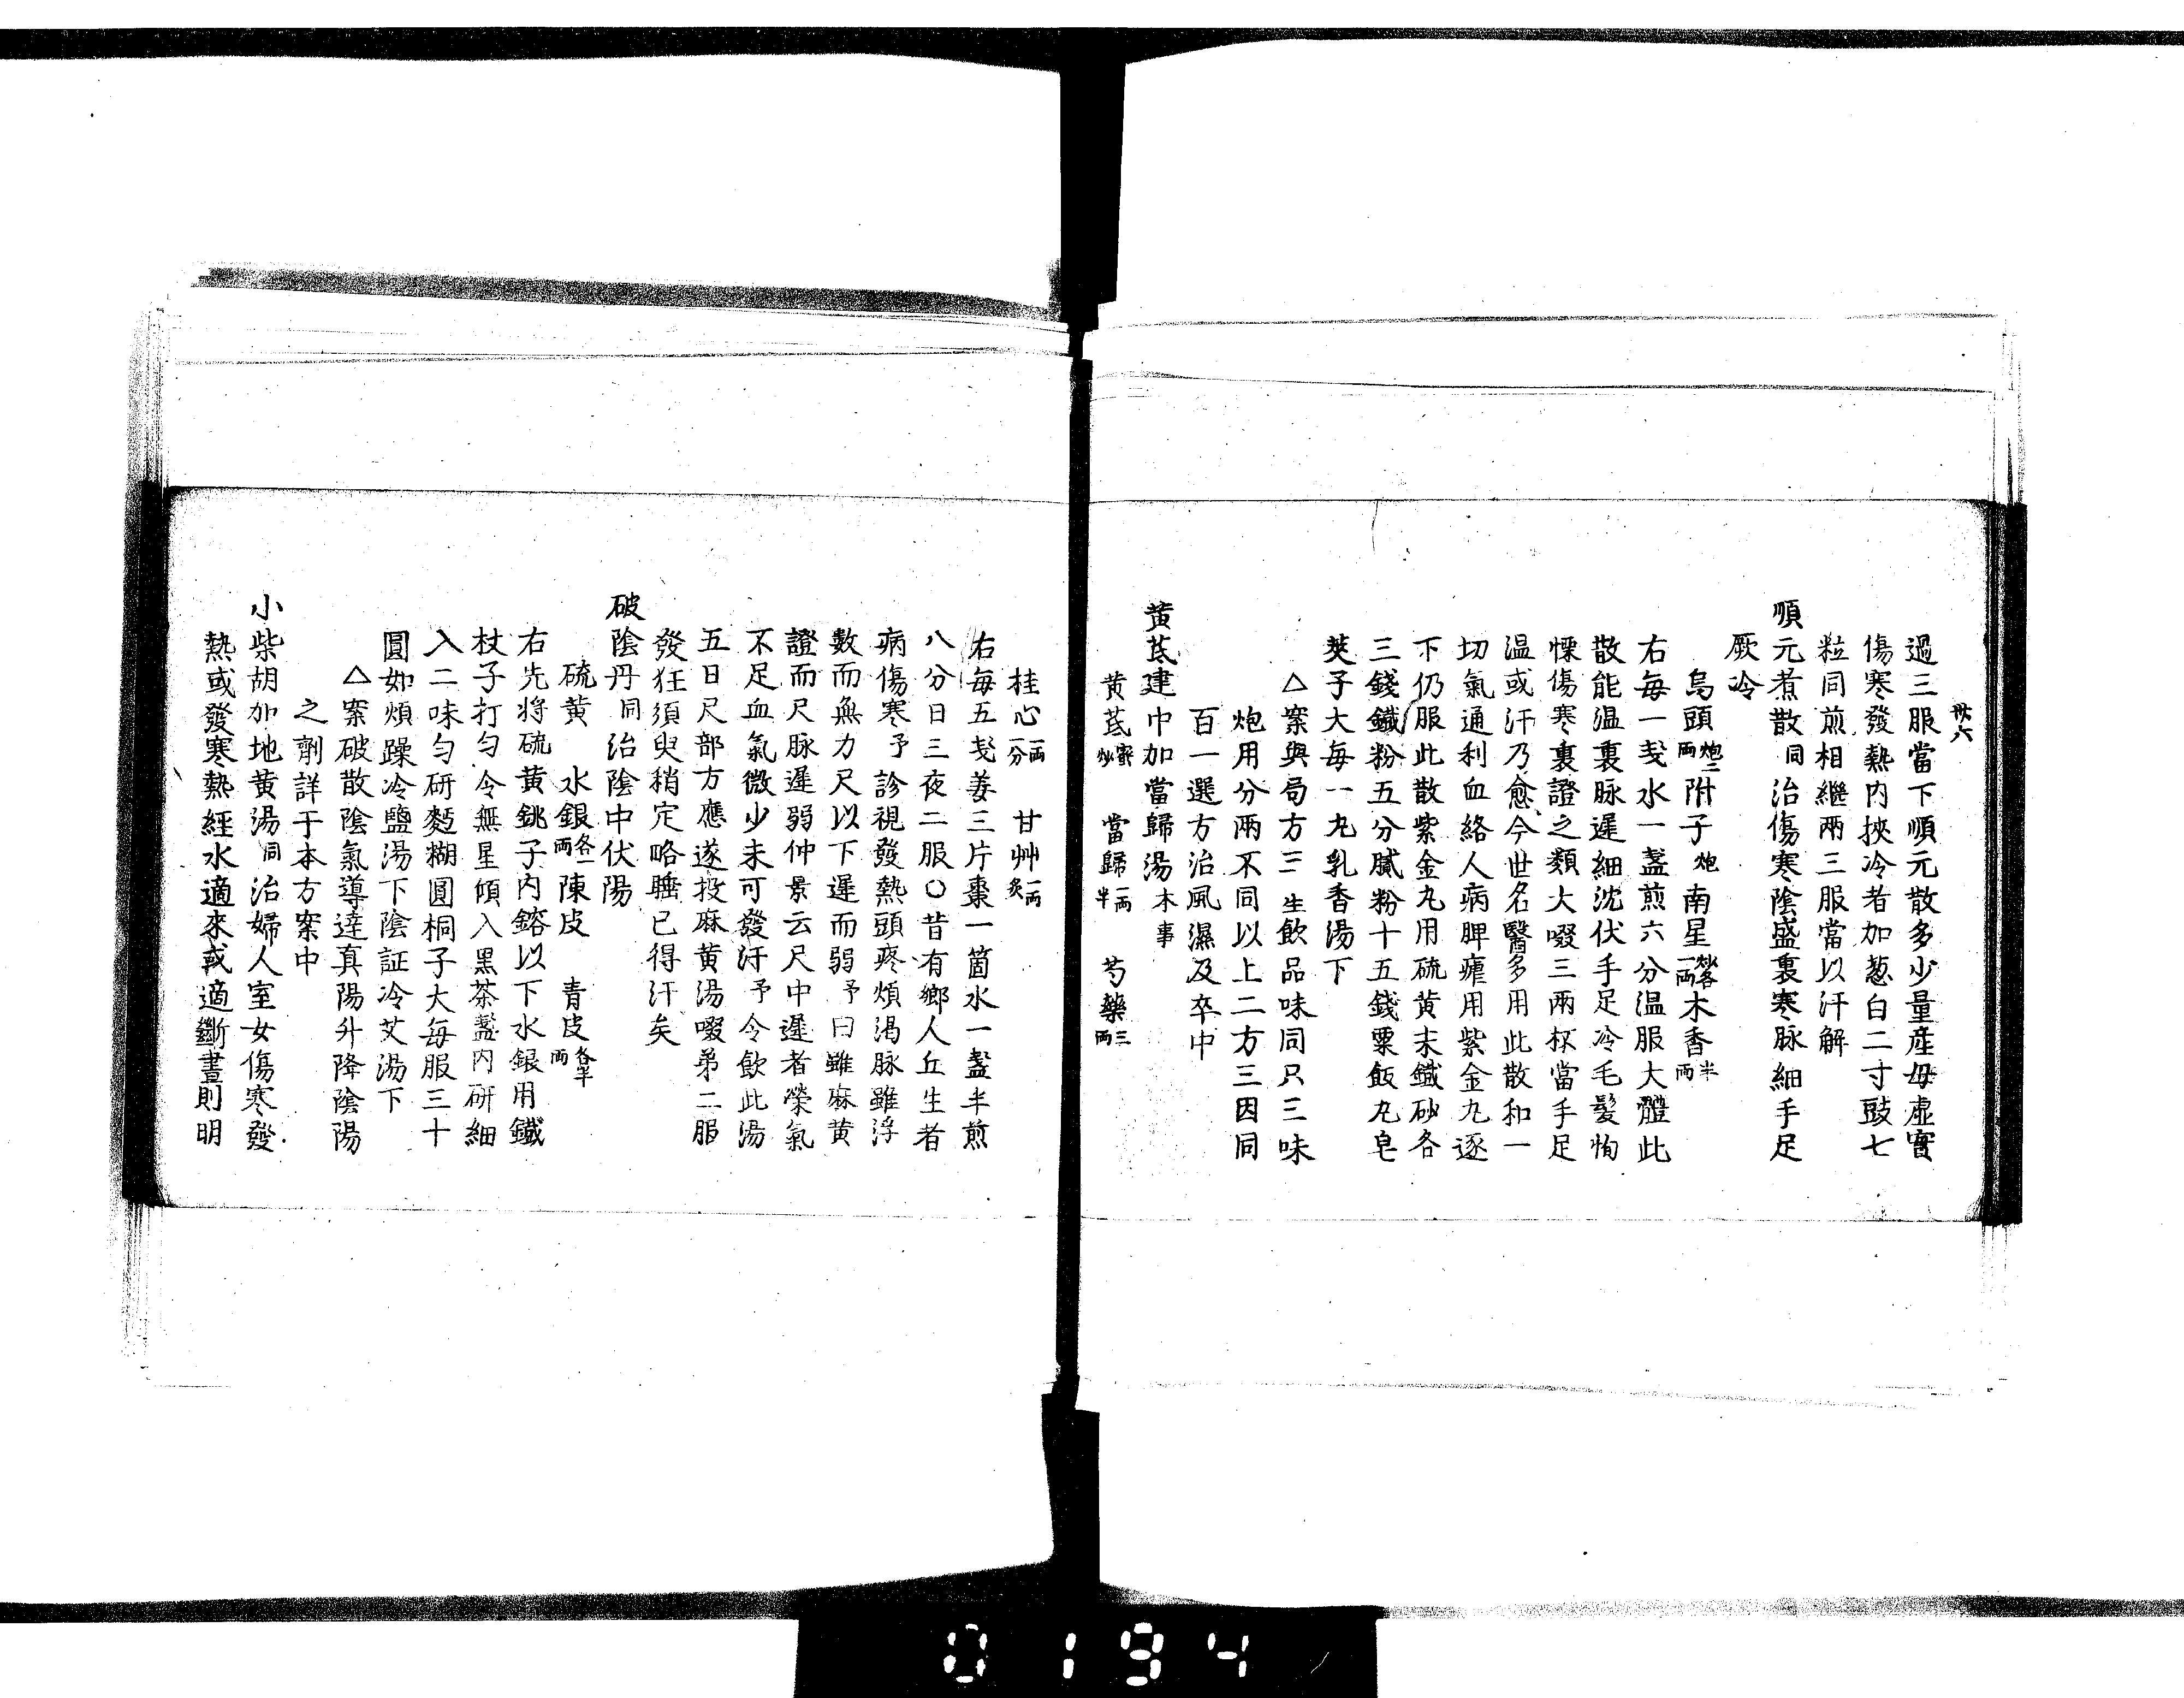 卅六
過三服當下順元散多少量産母虛實
傷寒發熱內挾冷者加葱白二寸豉七
粒同煎相継兩三服當以汗解
順元煮散 同 治傷寒陰盛裏寒脉細手足
厥冷
烏頭 炮二兩 附子 炮 南星 炒各一兩 木香 半兩
右每一戔水一盞煎六分温服大體此
散能温裏脉遲細沈伏手足冷毛髮恂
慄傷寒裏證之類大啜三兩杯當手足
温或汗乃愈今世名醫多用此散和一
切氣通利血絡人病脾瘧用紫金丸逐
下仍服此散紫金丸用硫黄末鍼砂各
三錢鐵粉五分膩粉十五錢粟飯丸皂
莢子大每一丸乳香湯下
△案與局方三生飲品味同只三味
炮用分兩不同以上二方三因同
百一選方治風濕及卒中
黄芪建中加當歸湯 本事
黄芪 蜜炒 當歸 一兩半 芍藥 三兩
桂心 一兩一分 甘艸 一兩炙
右每五戔姜三片棗一箇水一盞半煎
八分日三夜二服○昔有鄉人丘生者
病傷寒予診視發熱頭疼煩渴脉雖浮
數而無力尺以下遲而弱予曰雖麻黄
證而尺脉遲弱仲景云尺中遲者榮氣
不足血氣微少未可發汗予令飲此湯
五日尺部方應遂投麻黄湯啜第二服
發狂須臾稍定略睡已得汗矣
破陰丹 同 治陰中伏陽
硫黄 水銀 各一兩 陳皮 青皮 各半兩
右先將硫黄銚子內鎔以下水銀用鐵
杖子打勻令無星傾入黑茶盞內研細
入二味勻研麪糊圓桐子大每服三十
圓如煩躁冷鹽湯下陰証冷艾湯下
△案破散陰氣導達真陽升降陰陽
之劑詳于本方案中
小柴胡加地黄湯 同 治婦人室女傷寒發
熱或發寒熱經水適來或適斷晝則明
0194